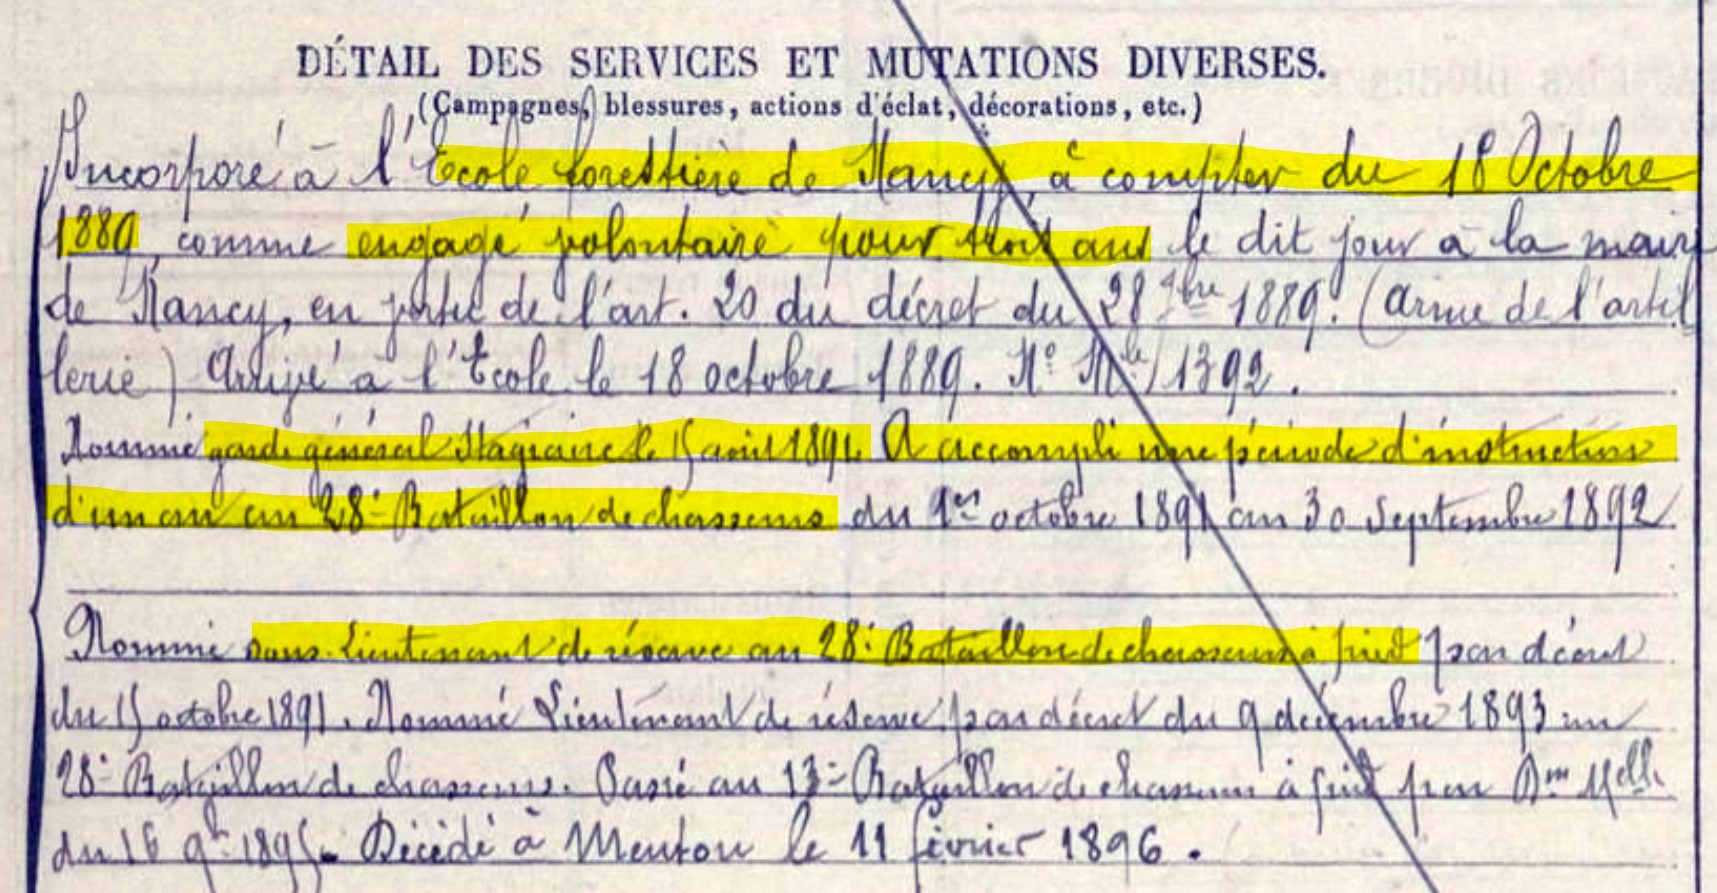 DÉTAIL DES SERVICES ET MUTATIONS DIVERSES.
(Campagnes, blessures, actions d'éclat, décorations, etc.)
Incorporé à l'École forestière de Nancy, à compter du 18 Octobre
1889, comme engagé volontaire pour trois ans le dit jour à la mairie
de Nancy, en vertu de l'art. 20 du décret du 28 9bre 1889. (Arme de l'artil
lerie) Arrivé à l'École le 18 octobre 1889. N° Mle 1392.
Nommé garde général Stagiaire le 15 août 1891. A accompli une période d'instruction
d'un an au 28e Bataillon de chasseurs du 1er octobre 1891 au 30 Septembre 1892
Nommé sous-Lieutenant de réserve au 28e Bataillon de chasseurs à pied par décret
du 15 octobre 1891. Nommé Lieutenant de réserve par décret du 9 décembre 1893 au
28e Bataillon de chasseurs. Passé au 13e Bataillon de chasseurs à pied par Don Melle
du 16 9bre 1895. Décédé à Menton le 11 février 1896.